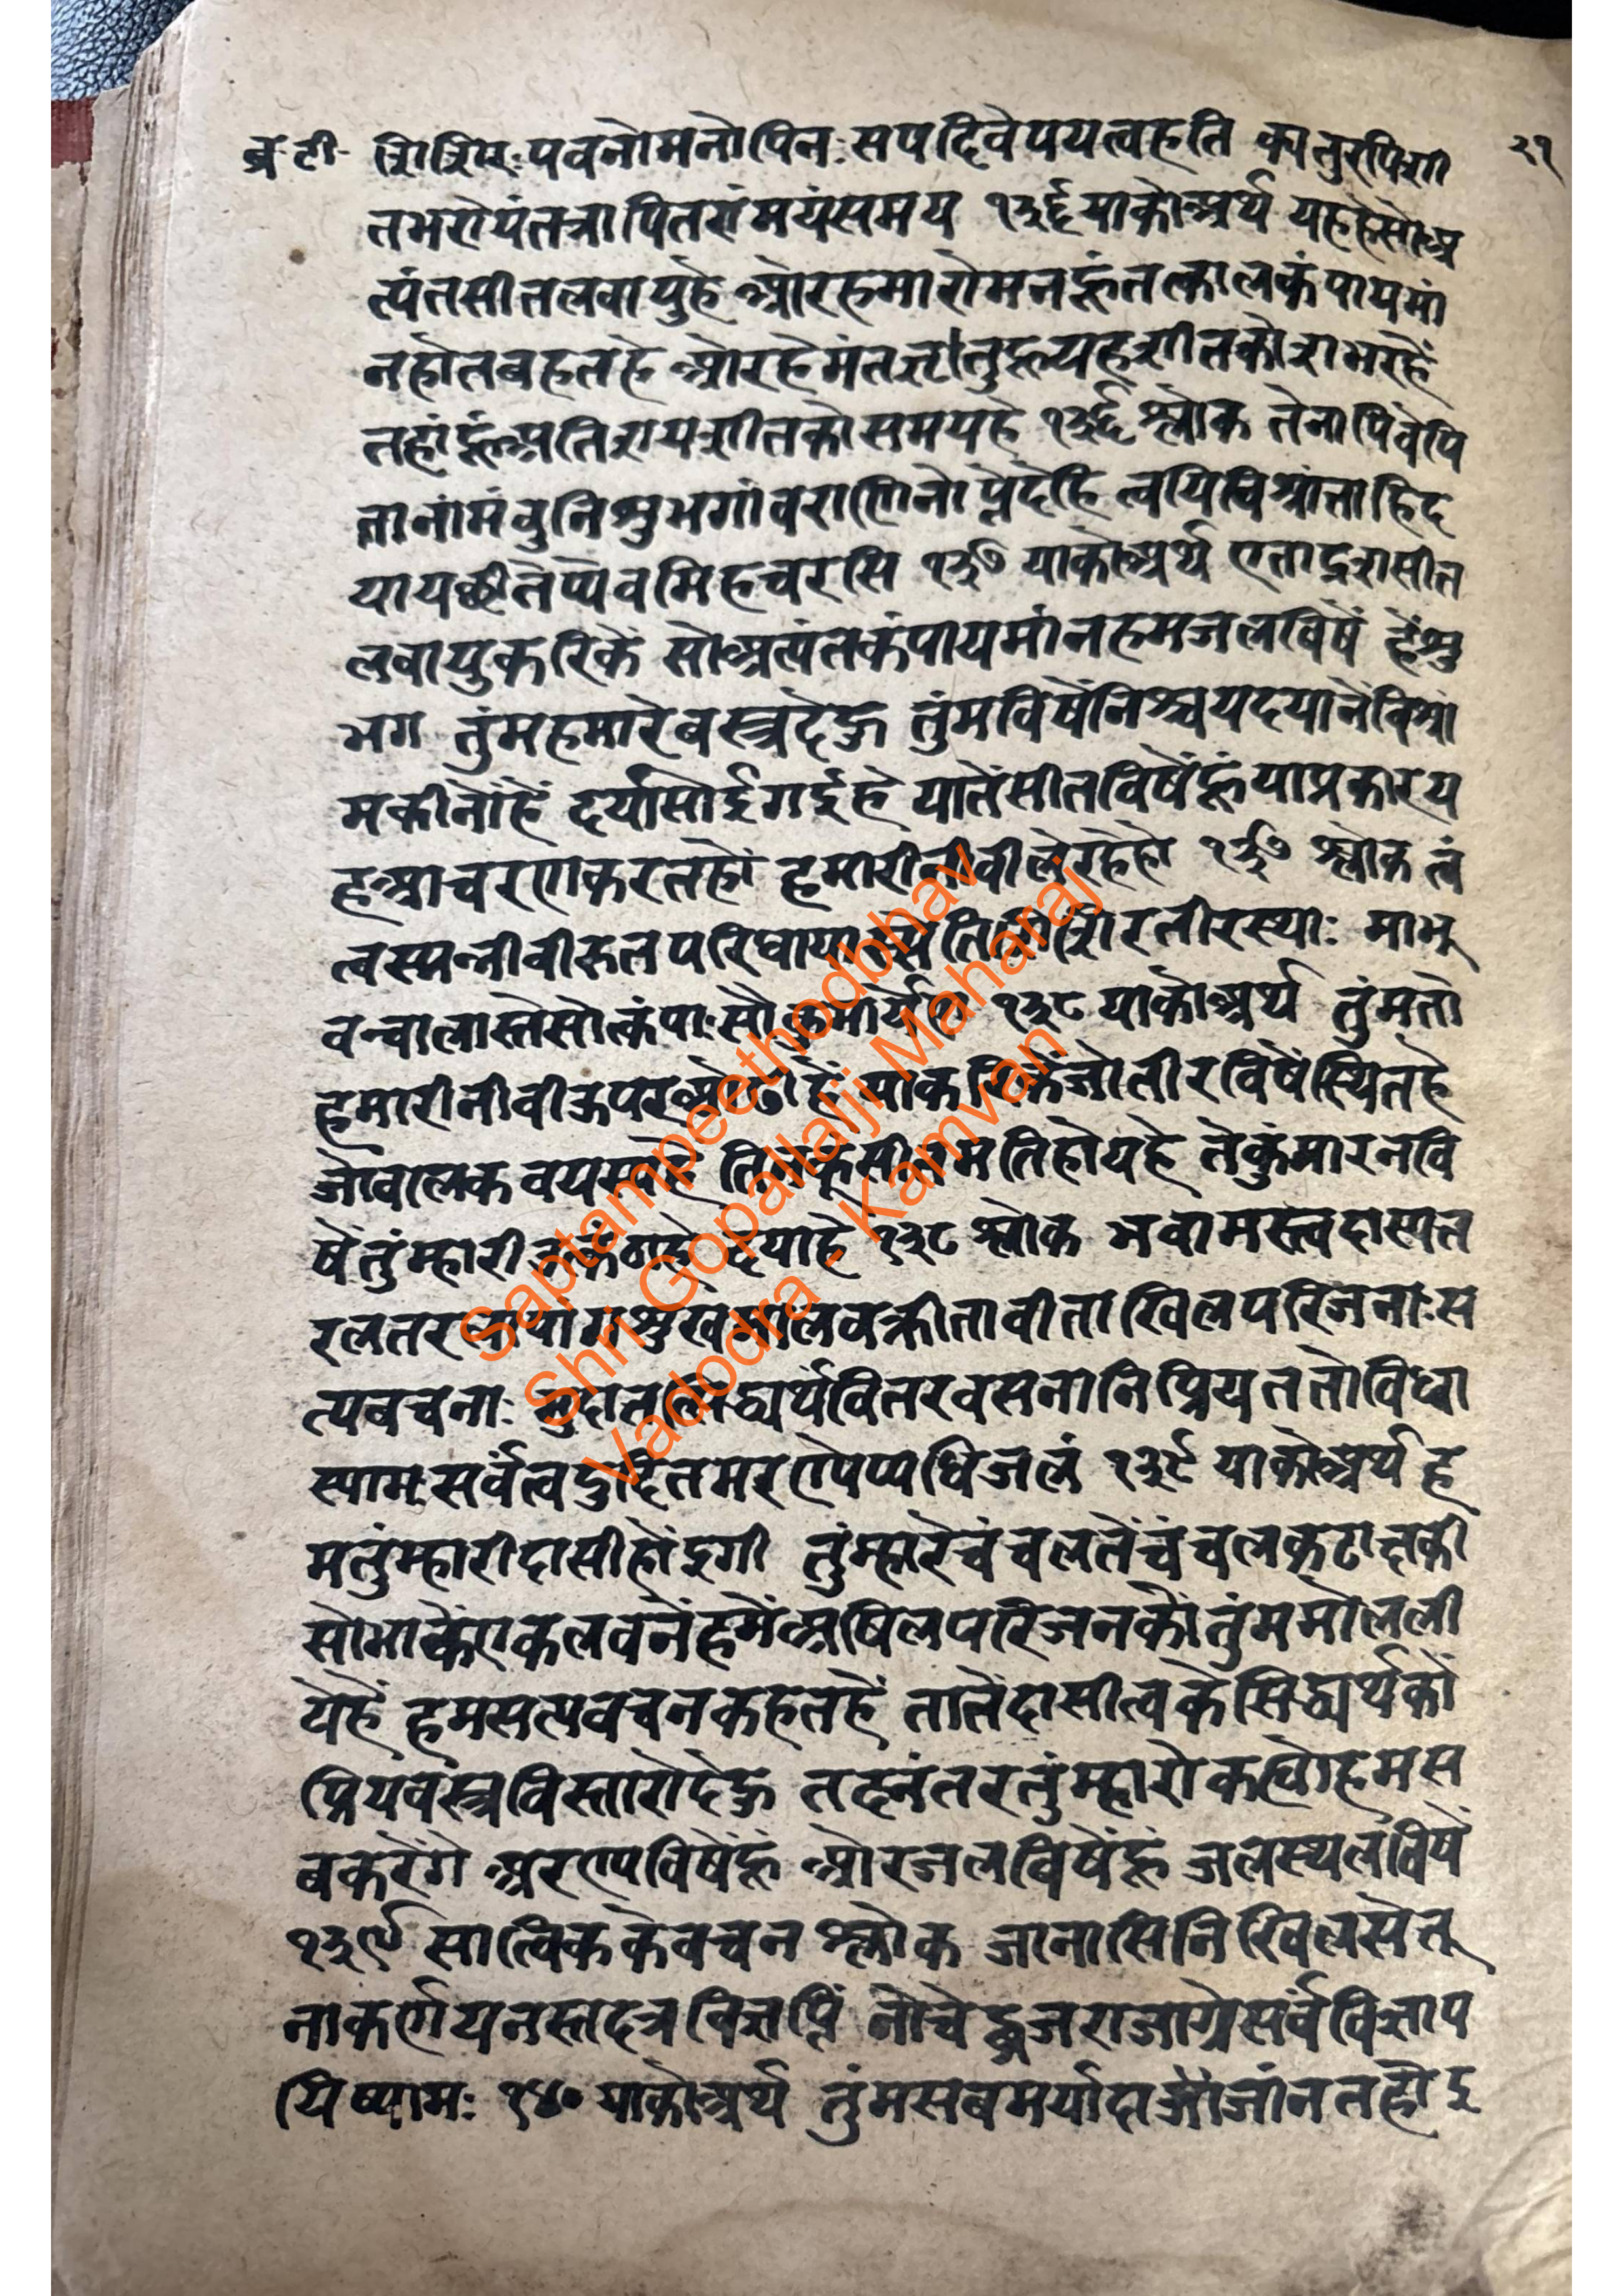 ब्र॰टी॰ शिशिरः पवनोमनोपिनः सपदिवेपयत्वहति कातुरपिशी २१
तभरोयंतत्रापितरांमयंसमय १३६ याकोअर्थ यहहैसोअ
त्यंतसीतलवायुहै ओरहमारोमनहूंतत्कालकंपायमां
नहोतबहतहै ओरहेमंतऋतुहूयहशीतकोराभरहैं
तहांहूंअतिशयशीतकोसमयहै १३६ श्लोक तेनापिवेपि
तानांमंबुनिशुभगांवराणिनो देहि त्वयिविश्रांताहिद
यायछीतेप्येवमिहचरसि १३७ याकोअर्थ एताद्रशसीत
लवायुकरिकें सोअत्यंतकंपायमांनहमजलविषें हेंशु
भग तुंमहमारेवस्त्रदेऊ तुंमविषेंनिश्चयदयानेंविश्रां
मकीनोंहैं दयासोईगईहै यातेंसीतविषेंहूंयाप्रकारय
हआचरणकरतहों हमारीनीवीलेरहेहो १३७ श्लोक त्वं
त्वस्मन्नीवीरुतपरिधाया तीरस्थाः माभू
वन्वालास्तेसोत्कंपाः सौकुमार्येण १३८ याकोअर्थ तुंमतो
हमारीनीवीऊपर हैं जोतीरविषेंस्थितहै
जोवालकवयस्यहै मतिहोयहै तेकुंमारनवि
षेंतुंम्हारी दयाहै १३८ श्लोक भवामस्त्वदास्यत
रलतर शुखं वक्रीतावीताखिलपरिजनाः स
त्यवचनाः वितरवसनानिप्रियततोविधा
स्यामः सर्वंत्वदुदितमरण्येप्यधिजलं १३९ याकोअर्थ ह
मतुंम्हारीदासीहोंइगी तुंम्हारेचंचलतेंचंचलकटाक्षकी
सोभाकेंएकलवनेंहमेंअषिलपरिजनकोंतुंममोलली
येहैं हमसत्यवचनकहतहैं तातेंदासीत्वकेसिद्ध्यर्थकों
प्रियवंस्त्रविस्तारोदेऊ तदनंतरतुंम्हारोकह्योहमस
बकरेंगे अरण्यविषेंहूं ओरजलविषेंहूं जलस्थलविषें
१३९ सात्विककेवचन श्लोक जानासिनिखिलसेतू
नाकर्णयनस्तदत्रविज्ञप्तिं नोचेद्ब्रजराजाग्रेसर्वंविज्ञाप
यिष्यामः १४० याकोअर्थ तुंमसबमर्यादाजोजांनतहोइ
Saptampeethodbhav
Shri Gopallalji Maharaj
Vadodra - Kamvan